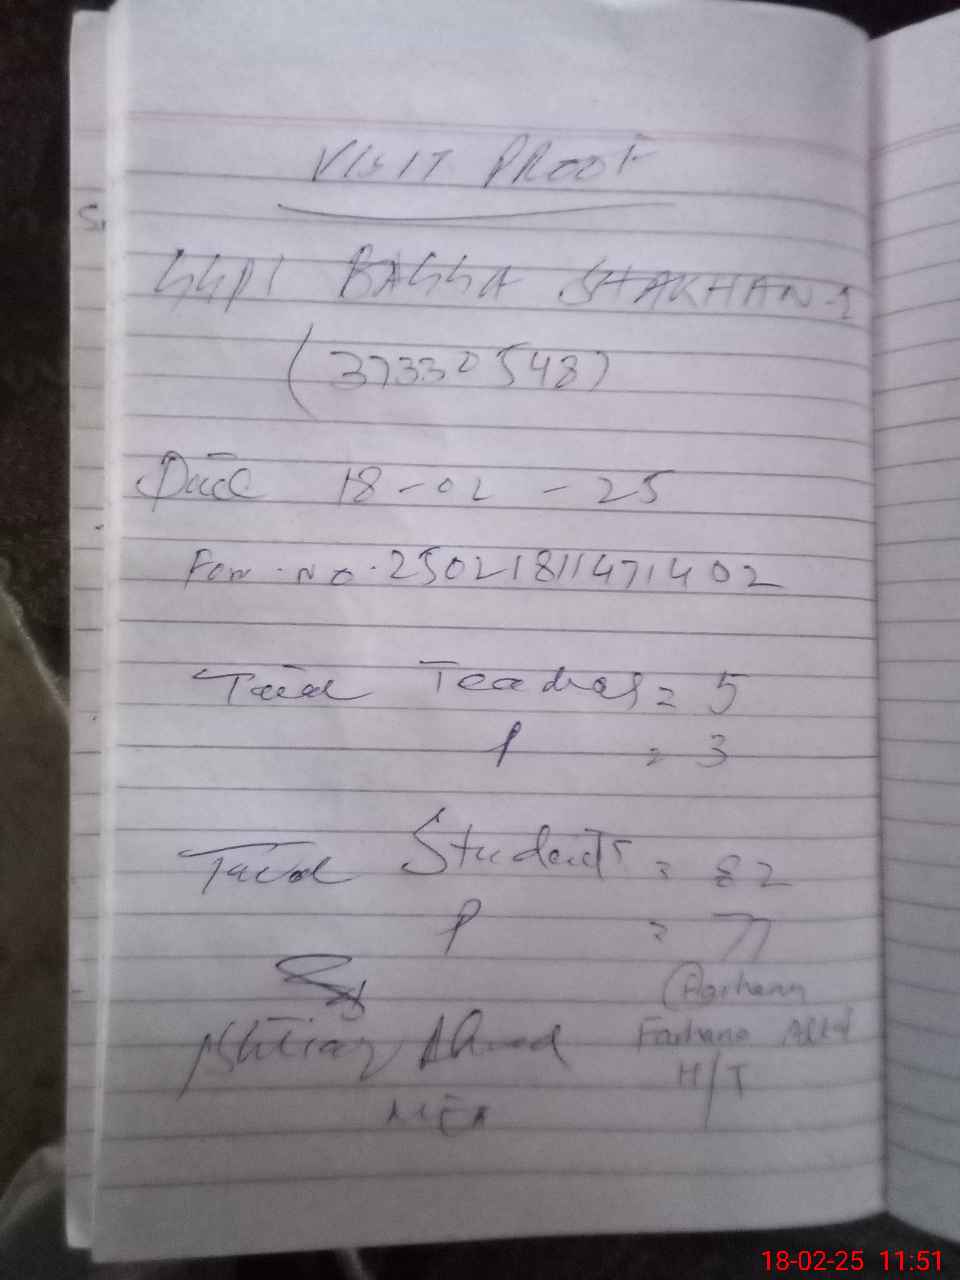 VISIT PROOF
GGPS BAGGA SHAKHAN-1
(37330548)
Date 18-02-25
Form No. 25021811471402
Total Teachers = 5
P = 3
Total Students = 82
P = 77
Farhana
Ahmad Farhana
H/T
MEA
18-02-25 11:51